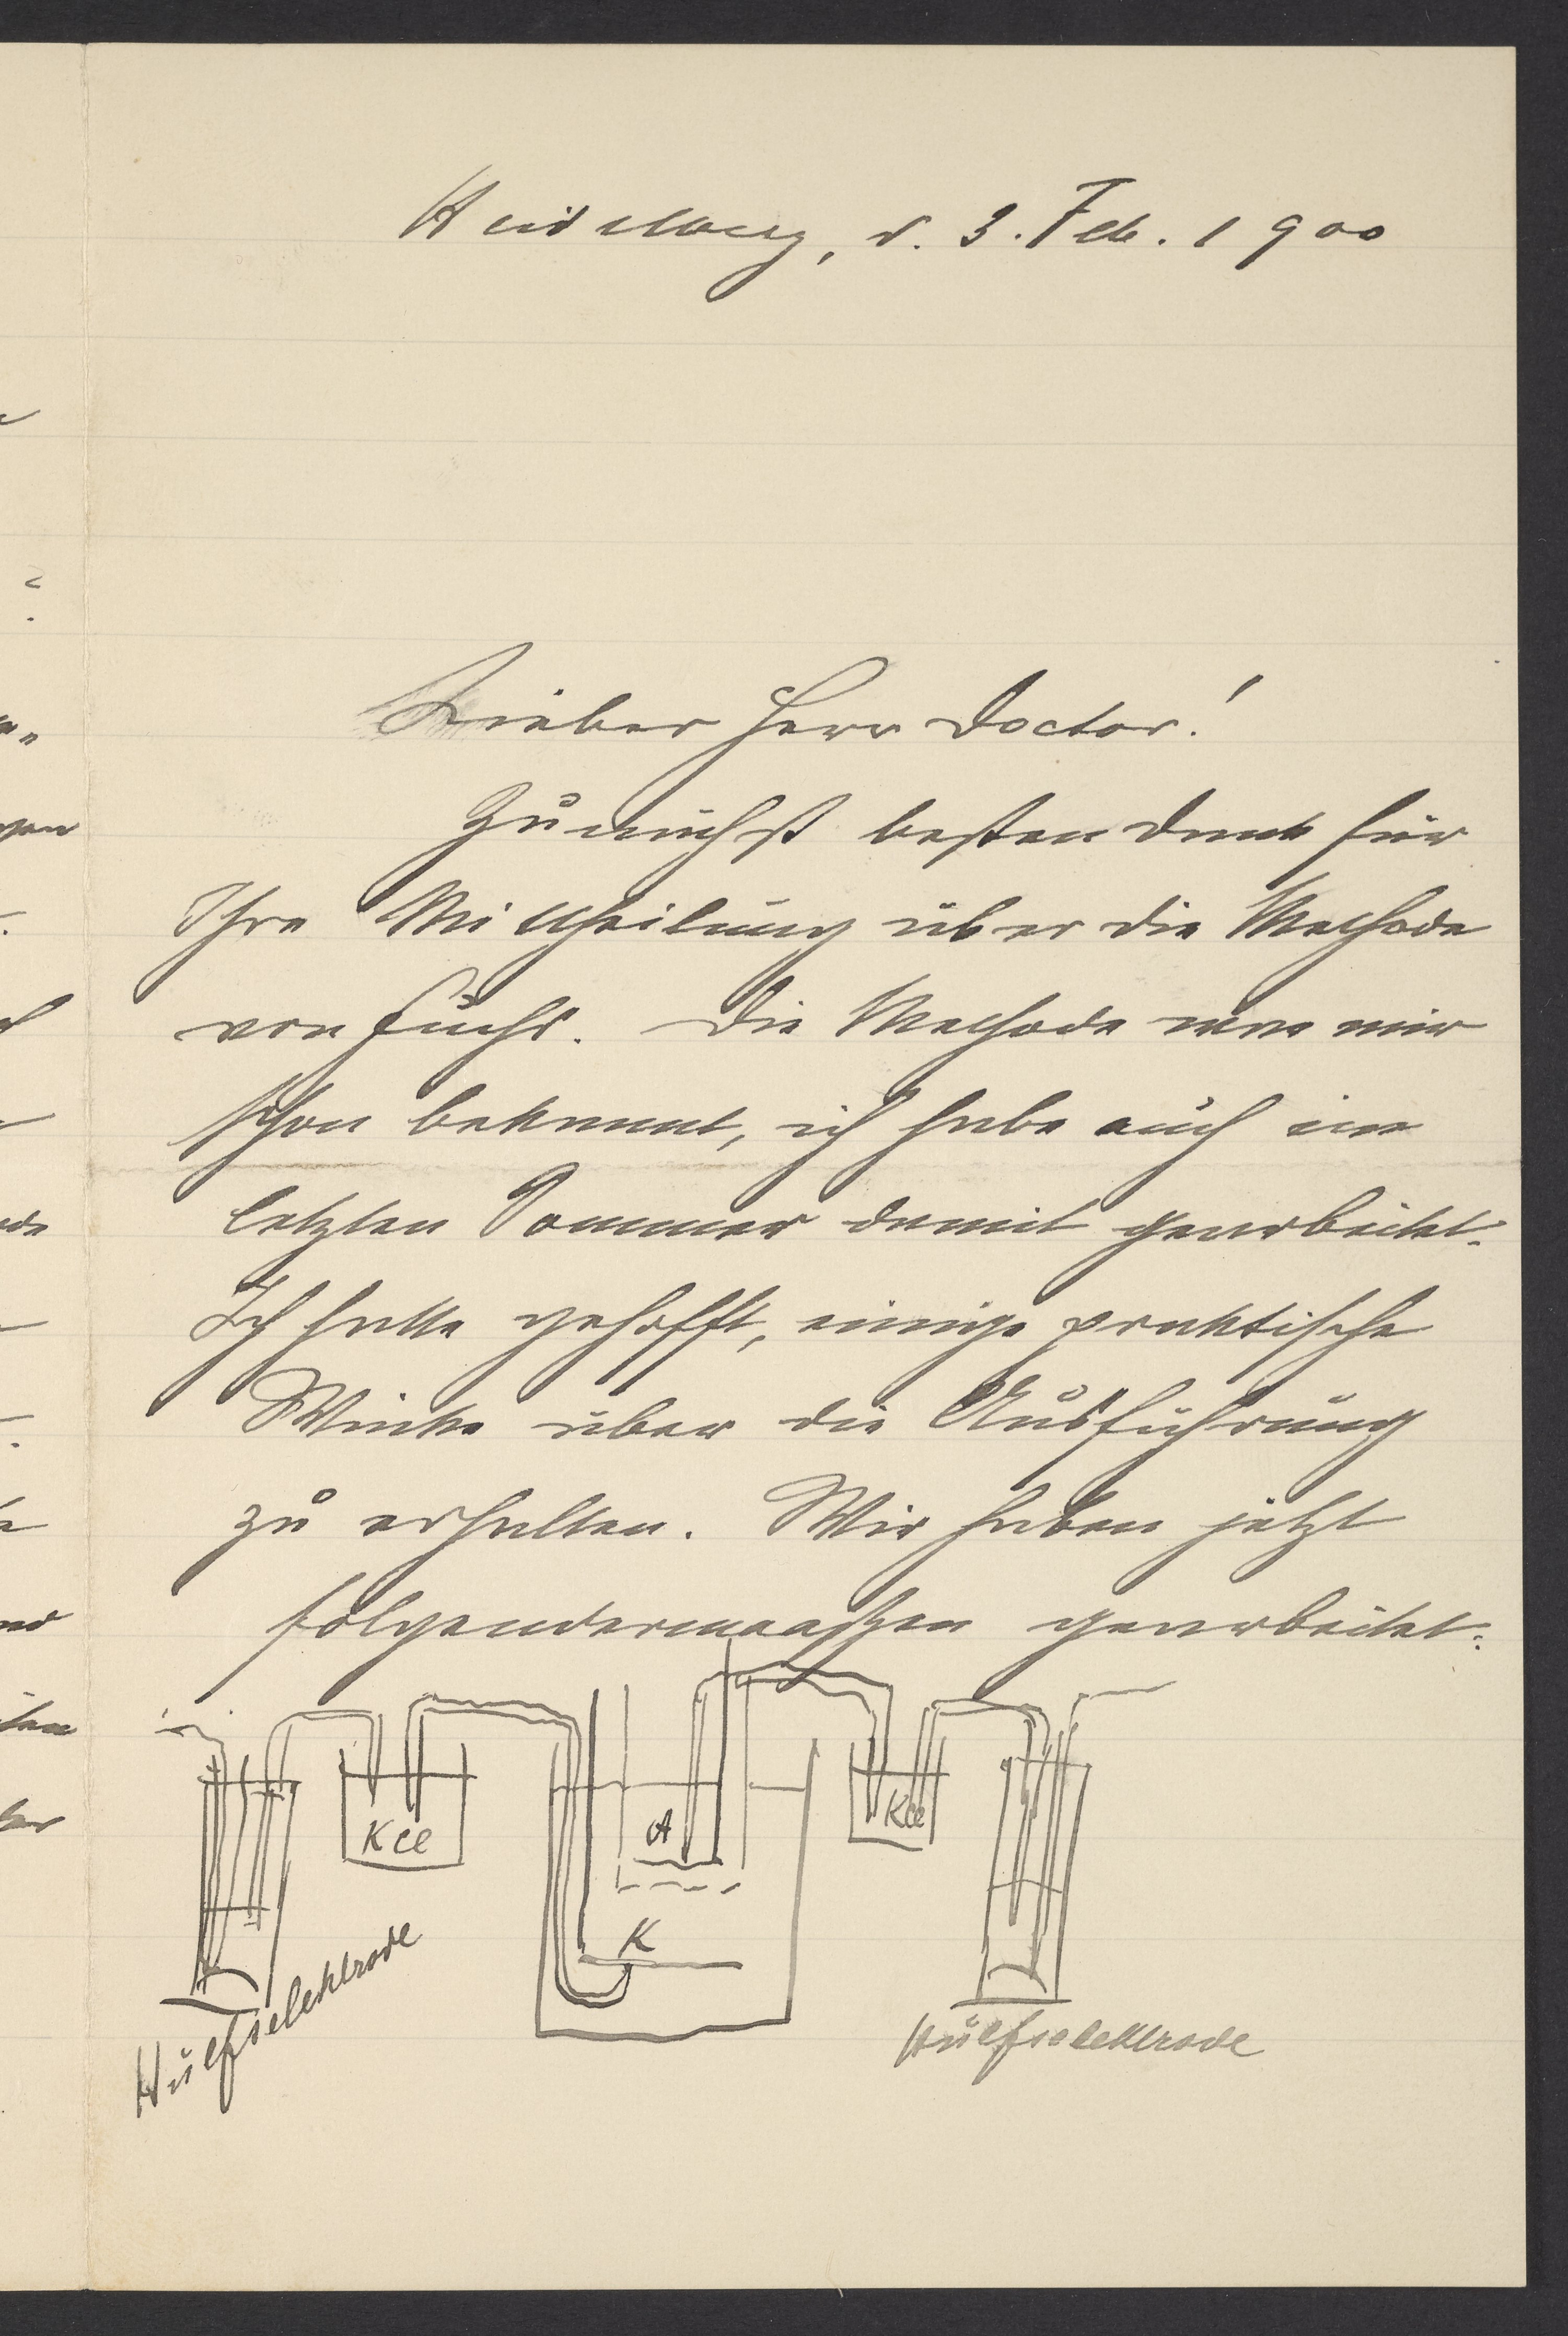 Heidelberg, d. 3. Feb. 1900
Lieber Herr Doctor!
Zunächst besten Dank für
Ihre Mittheilung über die Methode
von Fuchs. Die Methode war mir
schon bekannt, ich habe auch im
letzten Sommer damit gearbeitet.
Ich hatte gehofft, einige praktische
Winke über die Ausführung
zu erhalten. Wir haben jetzt
folgendermaaßen gearbeitet:
KCl
A
KCl
K
Hülfselektrode
Hülfselektrode